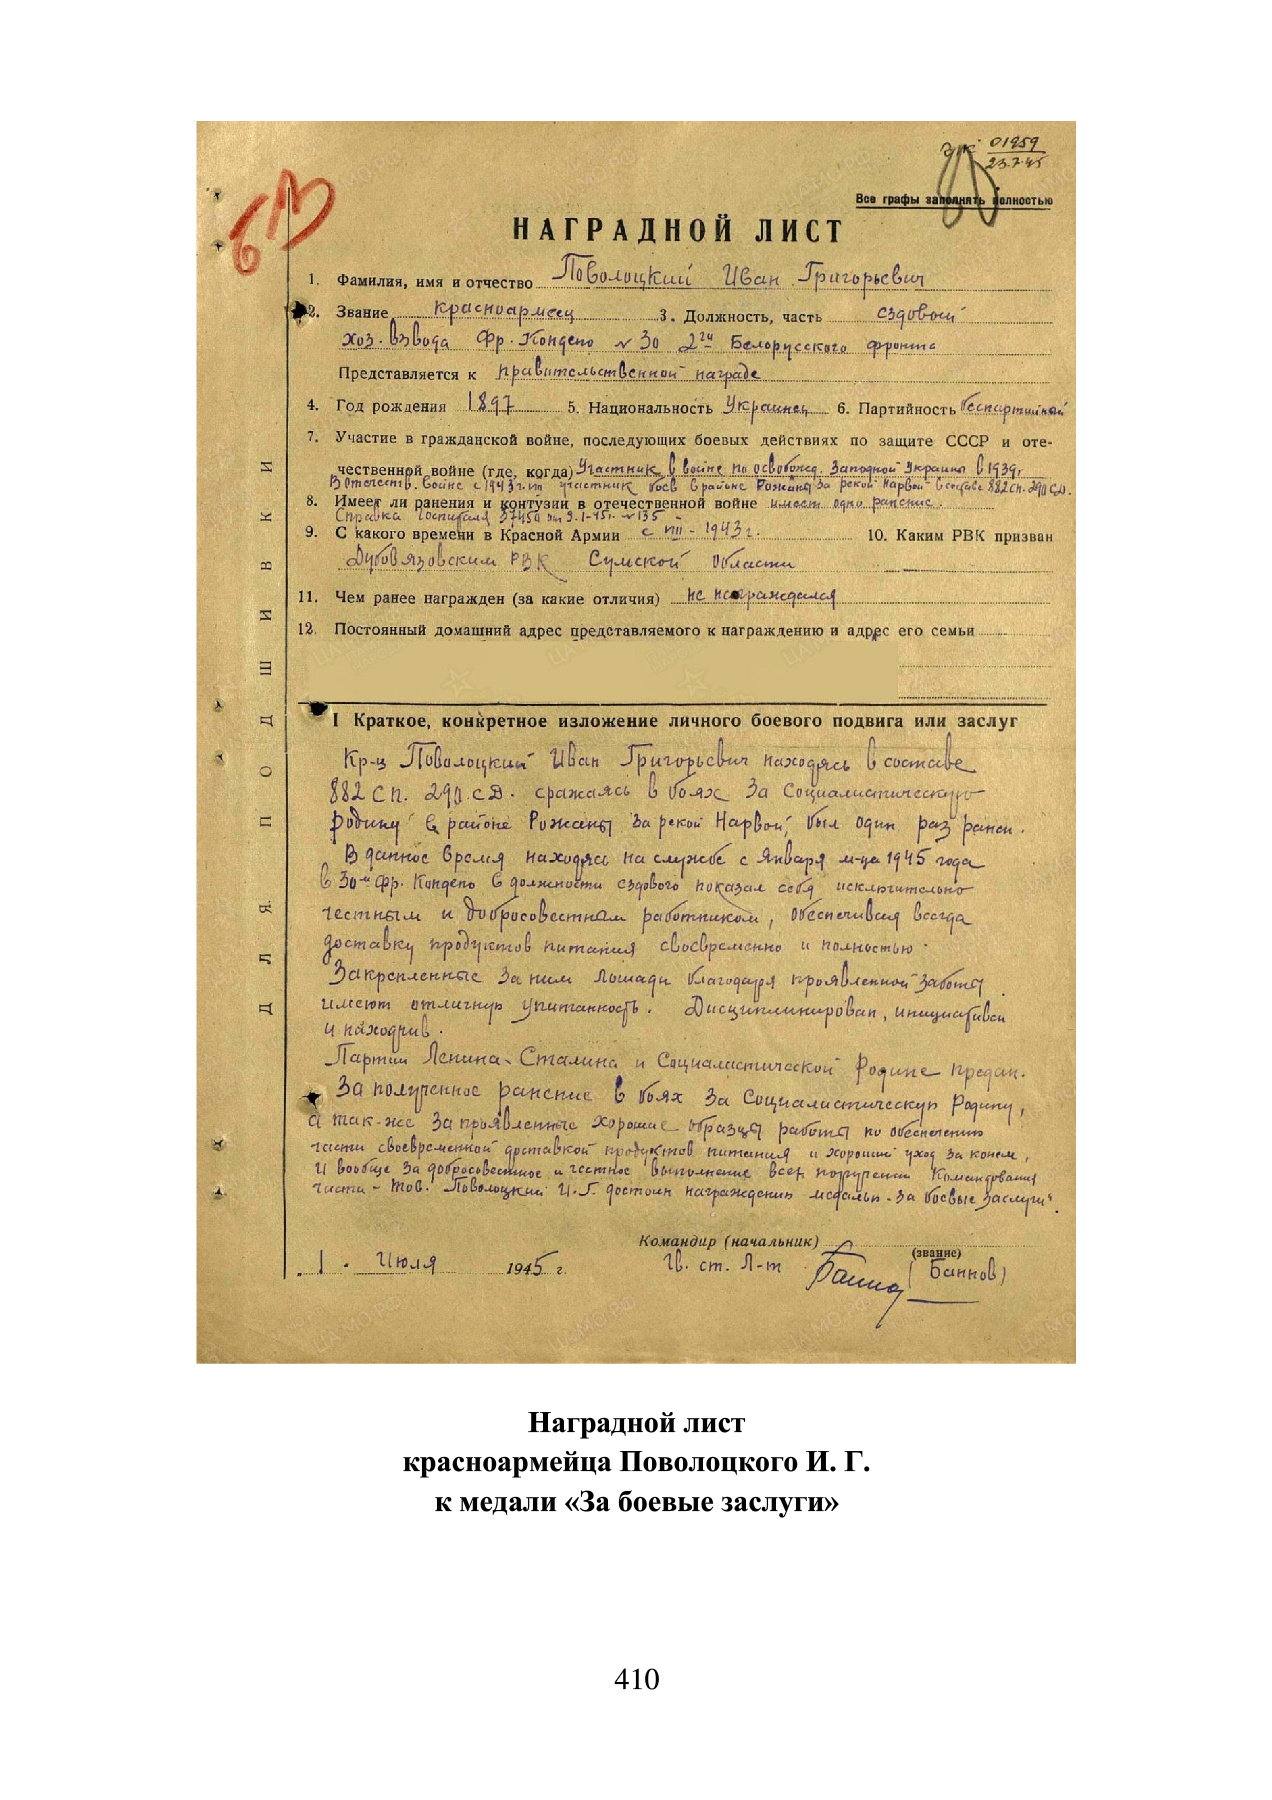 01959
23.7.45
Все графы заполнять полностью
НАГРАДНОЙ ЛИСТ
1. Фамилия, имя и отчество Поволоцкий Иван Григорьевич
2. Звание красноармеец 3. Должность, часть ездовой
хоз. взвода Фр. Кондепо № 30 2го Белорусского фронта
Представляется к правительственной награде
4. Год рождения 1897 5. Национальность Украинец 6. Партийность беспартийный
7. Участие в гражданской войне, последующих боевых действиях по защите СССР и оте-
чественной войне (где, когда) Участник в войне по освобожд. Западной Украины в 1939г.
В отечеств. войне с 1943г. участник боев в районе Рожаны за рекой Нарвой в составе 882 сп. 290 с.д.
8. Имеет ли ранения и контузии в отечественной войне имеет одно ранение.
Справка госпиталя 3745 от 9.1-45г. №135
9. С какого времени в Красной Армии с VIII - 1943г. 10. Каким РВК призван
Дубовязовским РВК Сумской области
11. Чем ранее награжден (за какие отличия) не награждался
12. Постоянный домашний адрес представляемого к награждению и адрес его семьи
ДЛЯ ПОДШИВКИ
I Краткое, конкретное изложение личного боевого подвига или заслуг
Кр-ц Поволоцкий Иван Григорьевич находясь в составе
882 сп. 290 с.д. сражаясь в боях за Социалистическую
родину в районе Рожаны за рекой Нарвой, был один раз ранен.
В данное время находясь на службе с Января м-ца 1945 года
в 30-м Фр. Кондепо в должности ездового показал себя исключительно
честным и добросовестным работником, обеспечивая всегда
доставку продуктов питания своевременно и полностью.
Закрепленные за ним лошади благодаря проявленной заботы
имеют отличную упитанность. Дисциплинирован, инициативен
и находчив.
Партии Ленина-Сталина и Социалистической Родине предан.
За полученное ранение в боях за Социалистическую Родину,
а так-же за проявленные хорошие образцы работы по обеспечению
части своевременной доставкой продуктов питания и хороший уход за конем,
и вообще за добросовестное и честное выполнение всех поручений Командования
части - тов. Поволоцкий И.Г. достоин награждения медалью - За боевые заслуги".
Командир (начальник)
(звание)
Гв. ст. Л-т (Баннов)
1. Июля 1945 г.
Наградной лист
красноармейца Поволоцкого И. Г.
к медали «За боевые заслуги»
410